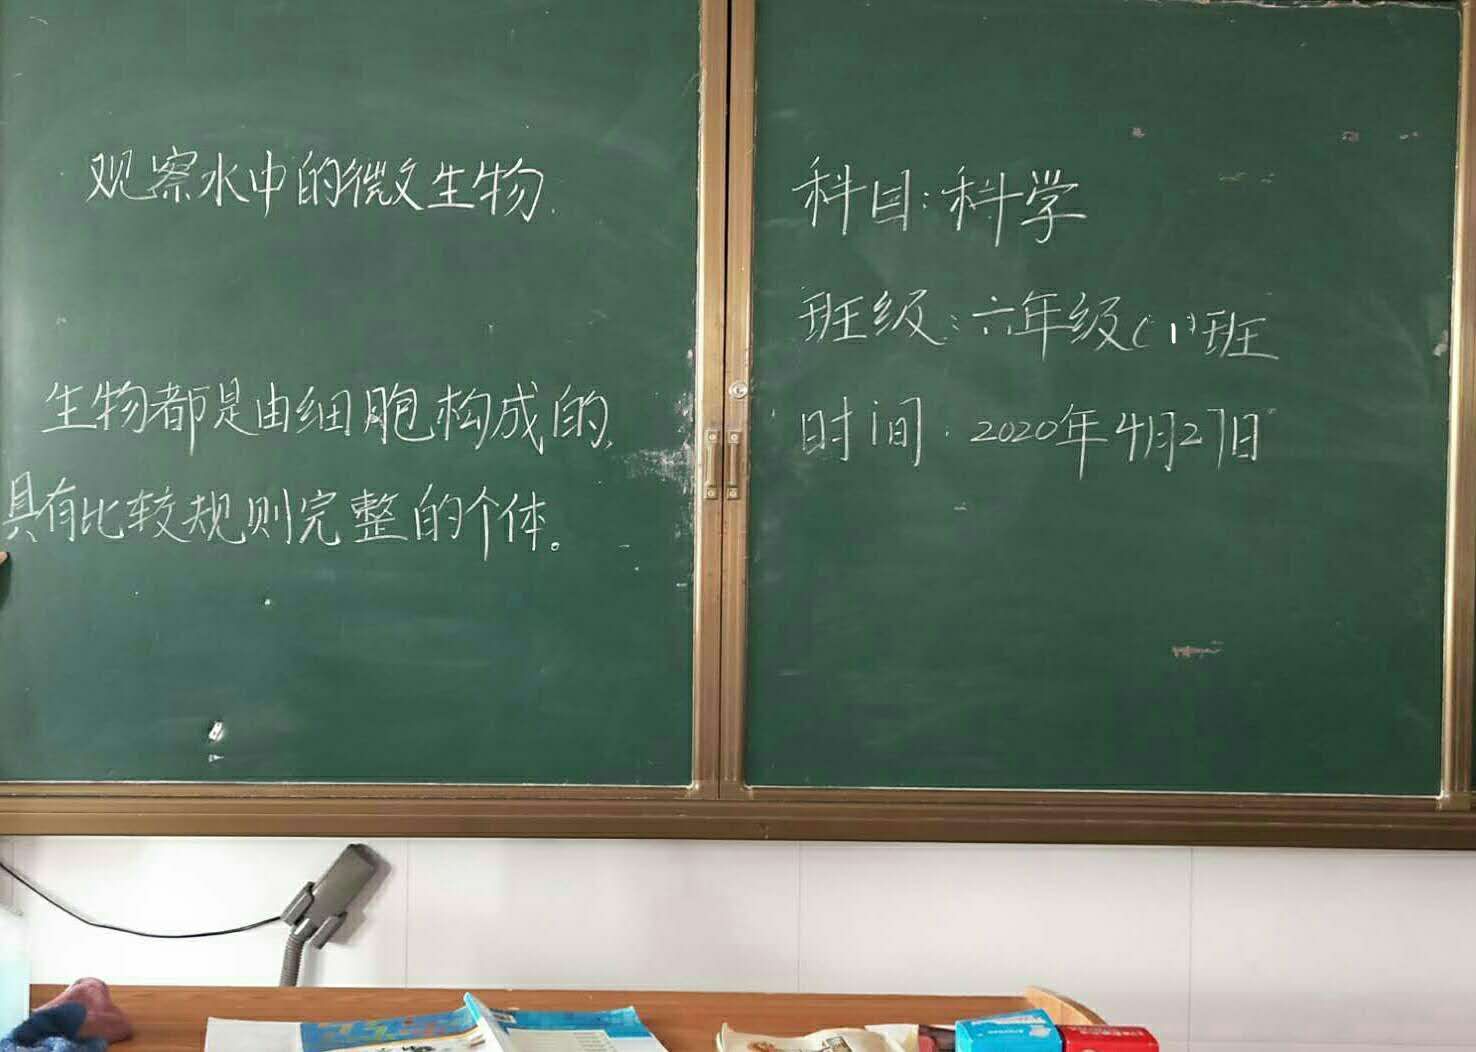 观察水中的微生物.
生物都是由细胞构成的,
具有比较规则完整的个体。
科目:科学
班级:六年级(1)班
时间:2020年4月27日